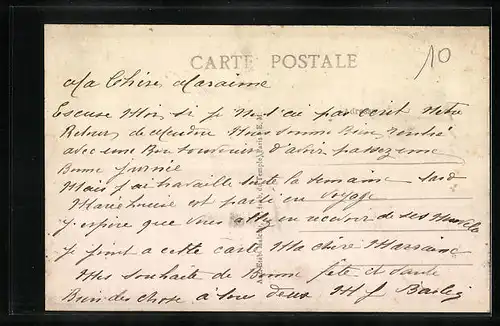 10
CARTE POSTALE
Ma Chère Maraine
Escuse Moi si Je Ne t'ai pas ecrit Notre
Retour de Meudon Nous somme Bien rentré
avec une Bon souvenir d'avoir passez une
Bonne Jurnée
Mais J'ai travaille toute la semaine
Marie Louise est parti en voyage
J'espère que Vous allez en recevoir de ses
Je Joint a cette carte Ma chère Marraine
Mes souhaits de Bonne fête et Santé
Bien des chose à tous deux M J